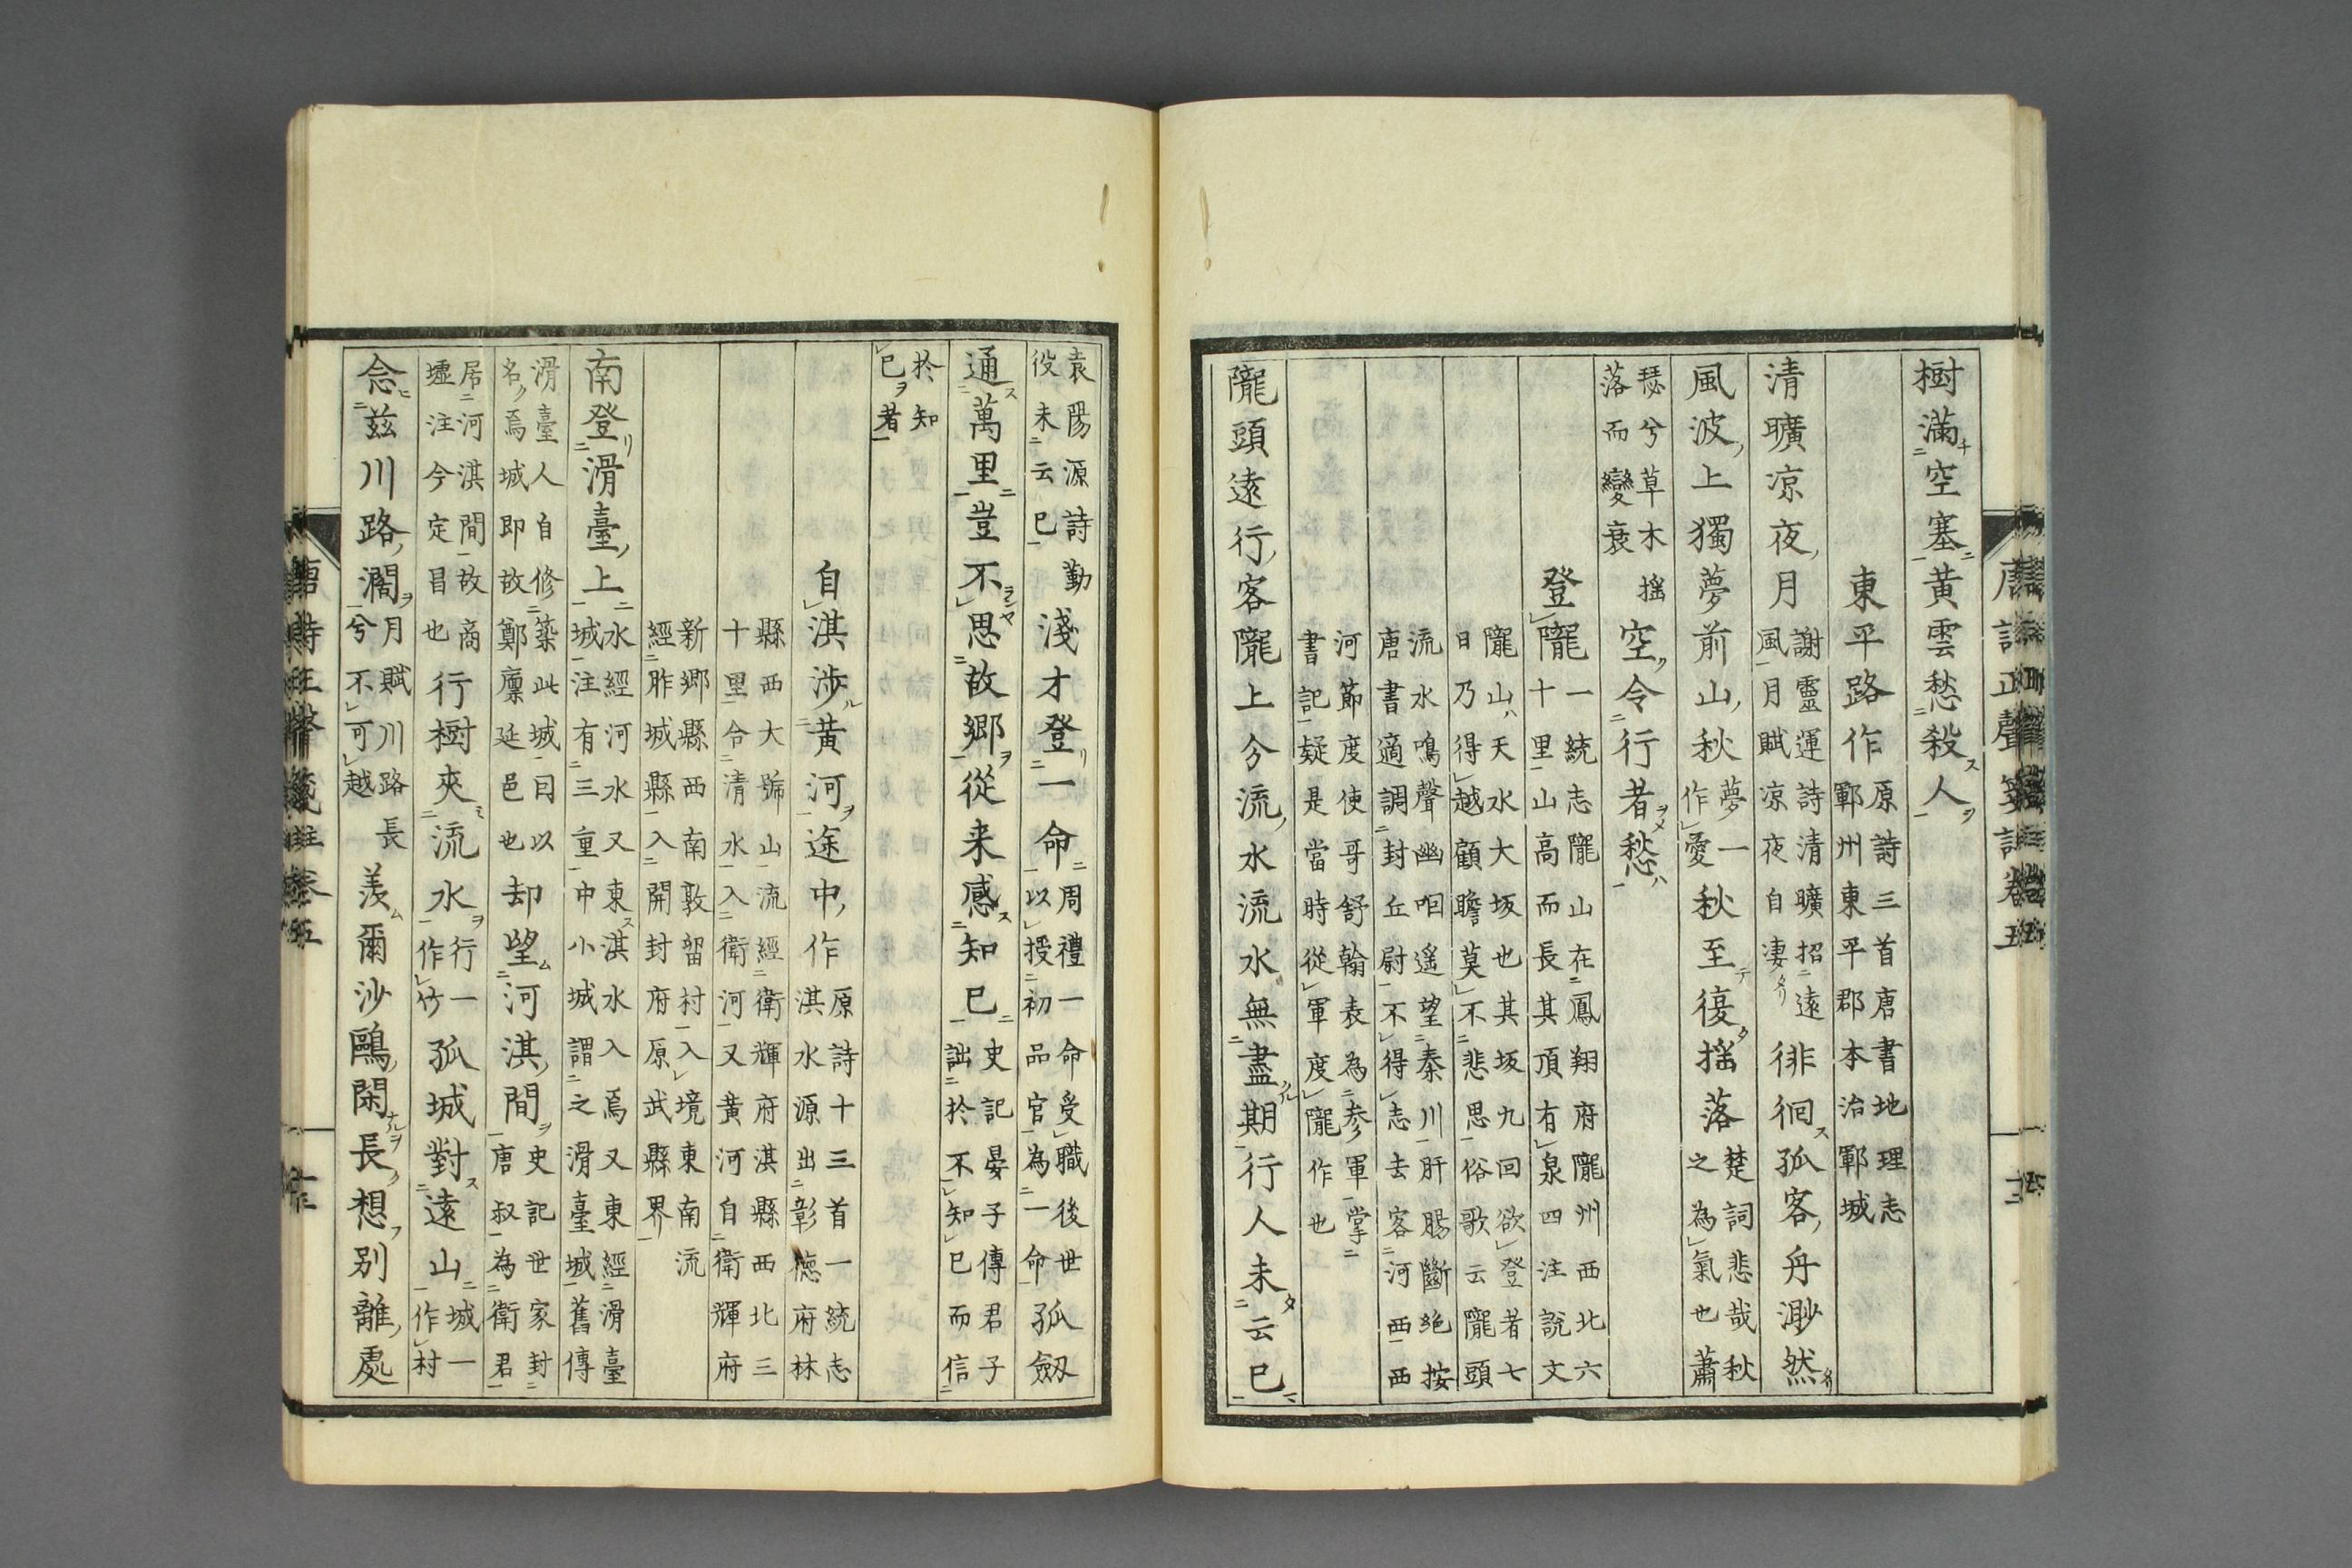 樹滿空塞黃雲愁殺人
東平路作原詩三首唐書地理志鄆州東平郡本治鄆城
清曠凉夜月謝靈運詩清曠招遠風月賦凉夜自凄徘徊孤客舟渺然
風波上獨夢前山秋夢一作愛秋至復搖落楚詞悲哉秋之為氣也蕭
瑟兮草木搖落而變衰空令行者愁
登隴一統志隴山在鳳翔府隴州西北六十里山高而長其頂有泉四注說文
隴山天水大坂也其坂九回欲登者七日乃得越顧瞻莫不悲思俗歌云隴頭
流水鳴聲幽咽遙望秦川肝腸斷絕按唐書適調封丘尉不得志去客河西西
河節度使哥舒翰表為參軍掌書記疑是當時從軍度隴作也
隴頭遠行客隴上分流水流水無盡期行人未云已
袁陽源詩勤役未云已淺才登一命周禮一命受職後世以授初品官為一命孤劔
通萬里豈不思故鄉從来感知已史記晏子傳君子詘於不知已而信
於知已者
自淇涉黃河途中作原詩十三首一統志淇水源出彰德府林
縣西大號山流經衛輝府淇縣西北三十里合清水入衛河又黃河自衛輝府
新鄉縣西南敦留村入境東南流經胙城縣入開封府原武縣界
南登滑臺上水經河水又東淇水入焉又東經滑臺城注有三重中小城謂之滑臺城舊傳
滑臺人自修築此城因以名焉城即故鄭廩延邑也却望河淇間史記世家封唐叔為衛君
居河淇間故商墟注今定昌也行樹夾流水行一作竹孤城對遠山城一作村
念茲川路濶月賦川路長兮不可越羨爾沙鷗閑長想別離處